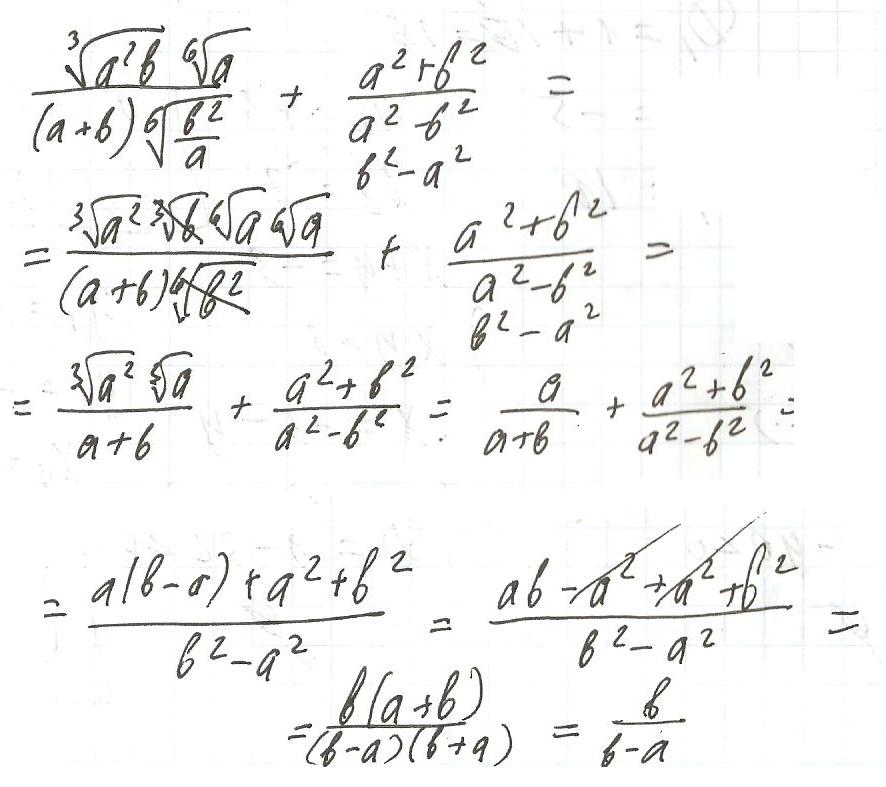 \frac{\sqrt[3]{a^2 b} \sqrt[6]{a}}{(a+b) \sqrt[6]{\frac{b^2}{a}}} + \frac{a^2+b^2}{\substack{a^2-b^2 \\ b^2-a^2}} =
= \frac{\sqrt[3]{a^2} \sqrt[3]{b} \sqrt[6]{a} \sqrt[6]{a}}{(a+b) \sqrt[6]{b^2}} + \frac{a^2+b^2}{\substack{a^2-b^2 \\ b^2-a^2}} =
= \frac{\sqrt[3]{a^2} \sqrt[3]{a}}{a+b} + \frac{a^2+b^2}{a^2-b^2} = \frac{a}{a+b} + \frac{a^2+b^2}{a^2-b^2} =
= \frac{a(b-a)+a^2+b^2}{b^2-a^2} = \frac{ab-a^2+a^2+b^2}{b^2-a^2} =
= \frac{b(a+b)}{(b-a)(b+a)} = \frac{b}{b-a}